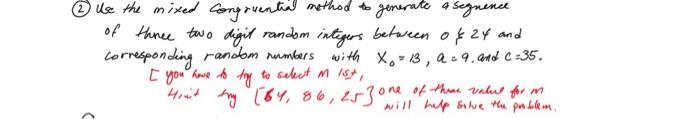 ② Use the mixed congruential method to generate a sequence
of three two digit random integers between 0 & 24 and
corresponding random numbers with X₀ = 13, a = 9, and C = 35.
[ you have to try to select m 1st,
Hint try [64, 86, 25} one of these value for m
will help solve the problem.